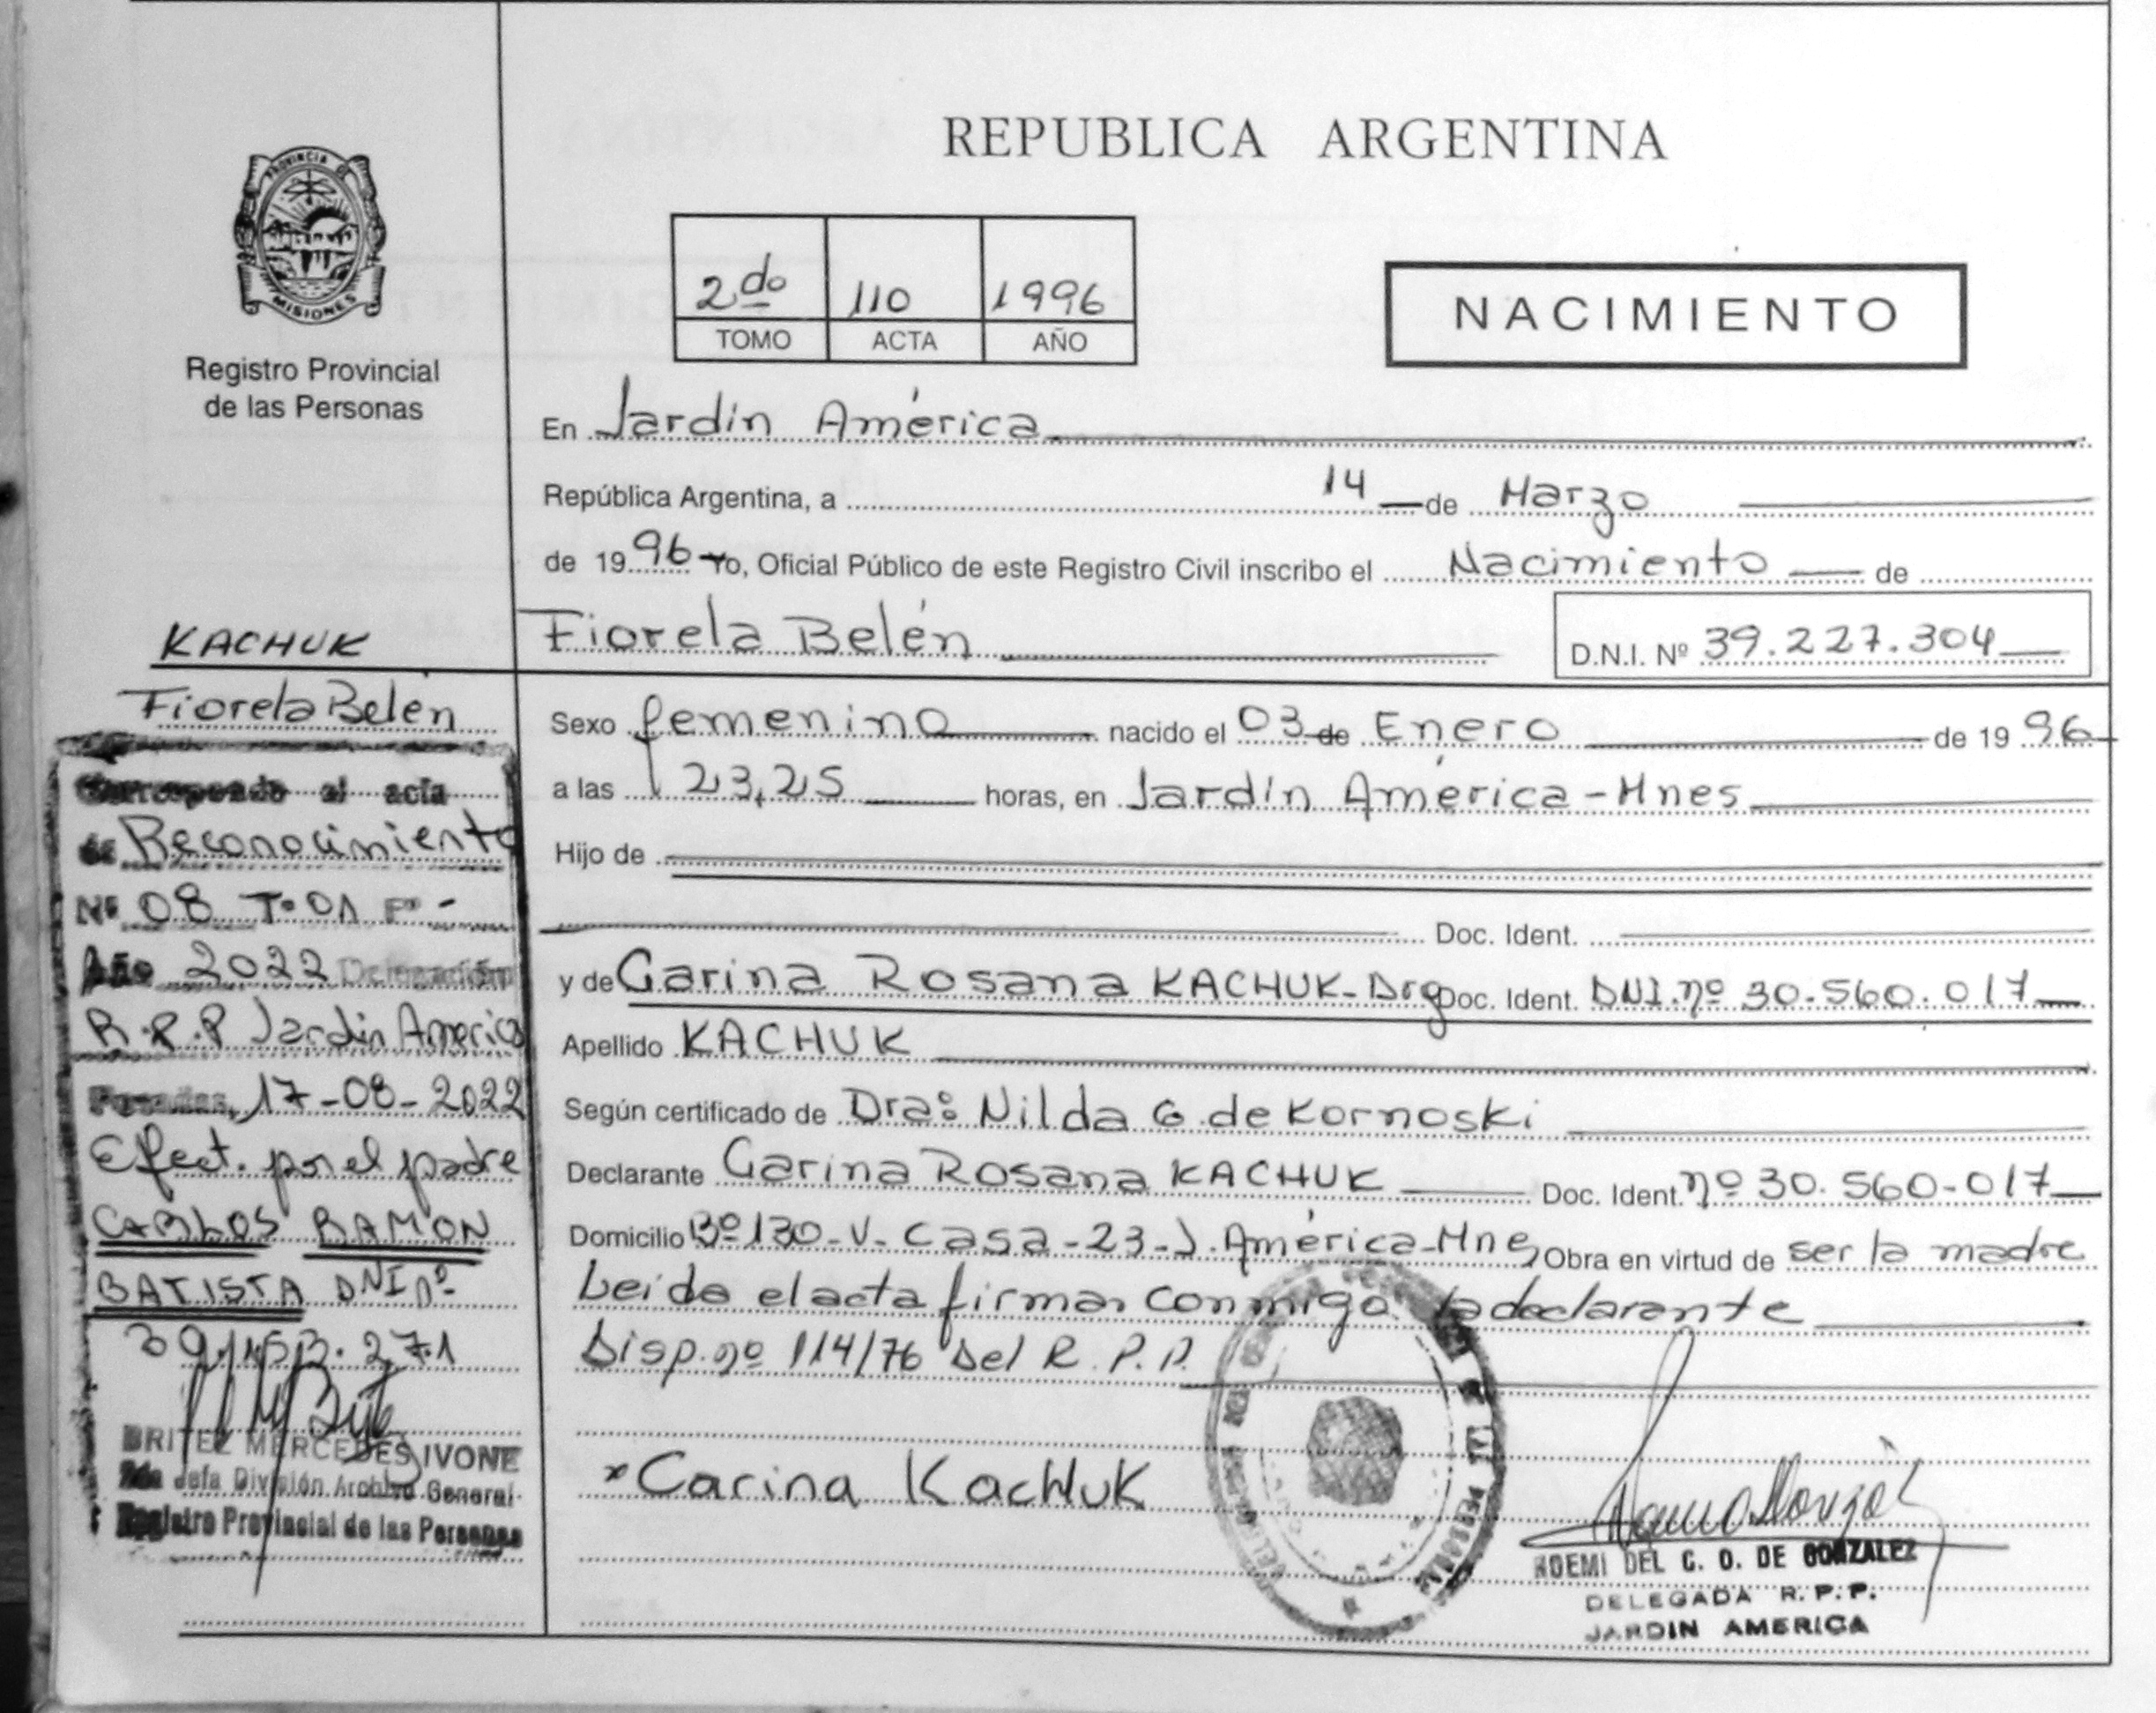 REPUBLICA ARGENTINA
PROVINCIA DE
MISIONES
Registro Provincial
de las Personas
2do 110 1996
TOMO ACTA AÑO
NACIMIENTO
En Jardín América
República Argentina, a 14 de Marzo
de 1996 Yo, Oficial Público de este Registro Civil inscribo el Nacimiento de
Fiorela Belén
D.N.I. Nº 39.227.304
Sexo femenino nacido el 03 de Enero de 1996
a las 23,25 horas, en Jardín América-Mnes
Hijo de
Doc. Ident.
y de Carina Rosana KACHUK-Arg Doc. Ident. DNI.nº 30.560.017
Apellido KACHUK
Según certificado de Dra: Nilda G. de Kornoski
Declarante Carina Rosana KACHUK Doc. Ident. nº 30.560-017
Domicilio Bº 130-V- Casa-23-J. América-Mnes Obra en virtud de ser la madre
Leida el acta firman conmigo la declarante
Disp. nº 114/76 Del R.P.P.
x Carina Kachuk
NOEMI DEL C. O. DE GONZALEZ
DELEGADA R. P. P.
JARDIN AMERICA
KACHUK
Fiorela Belén
Corresponde al acta
de Reconocimiento
Nº 08 Tº 01 Fº -
Año 2022 Delegación
R.R.P Jardín America
Posadas, 17-08-2022
Efect. por el padre
CARLOS RAMON
BATISTA DNI nº
BRITEZ MERCEDES IVONE
Jefa División Archivo General
Registro Provincial de las Personas